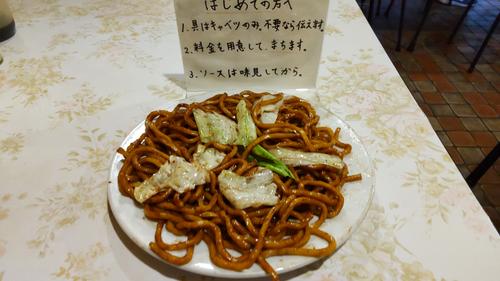 はじめての方へ
1. 具はキャベツのみ。不要なら伝えます。
2. 料金を用意して、まちます。
3. ソースは味見してから。